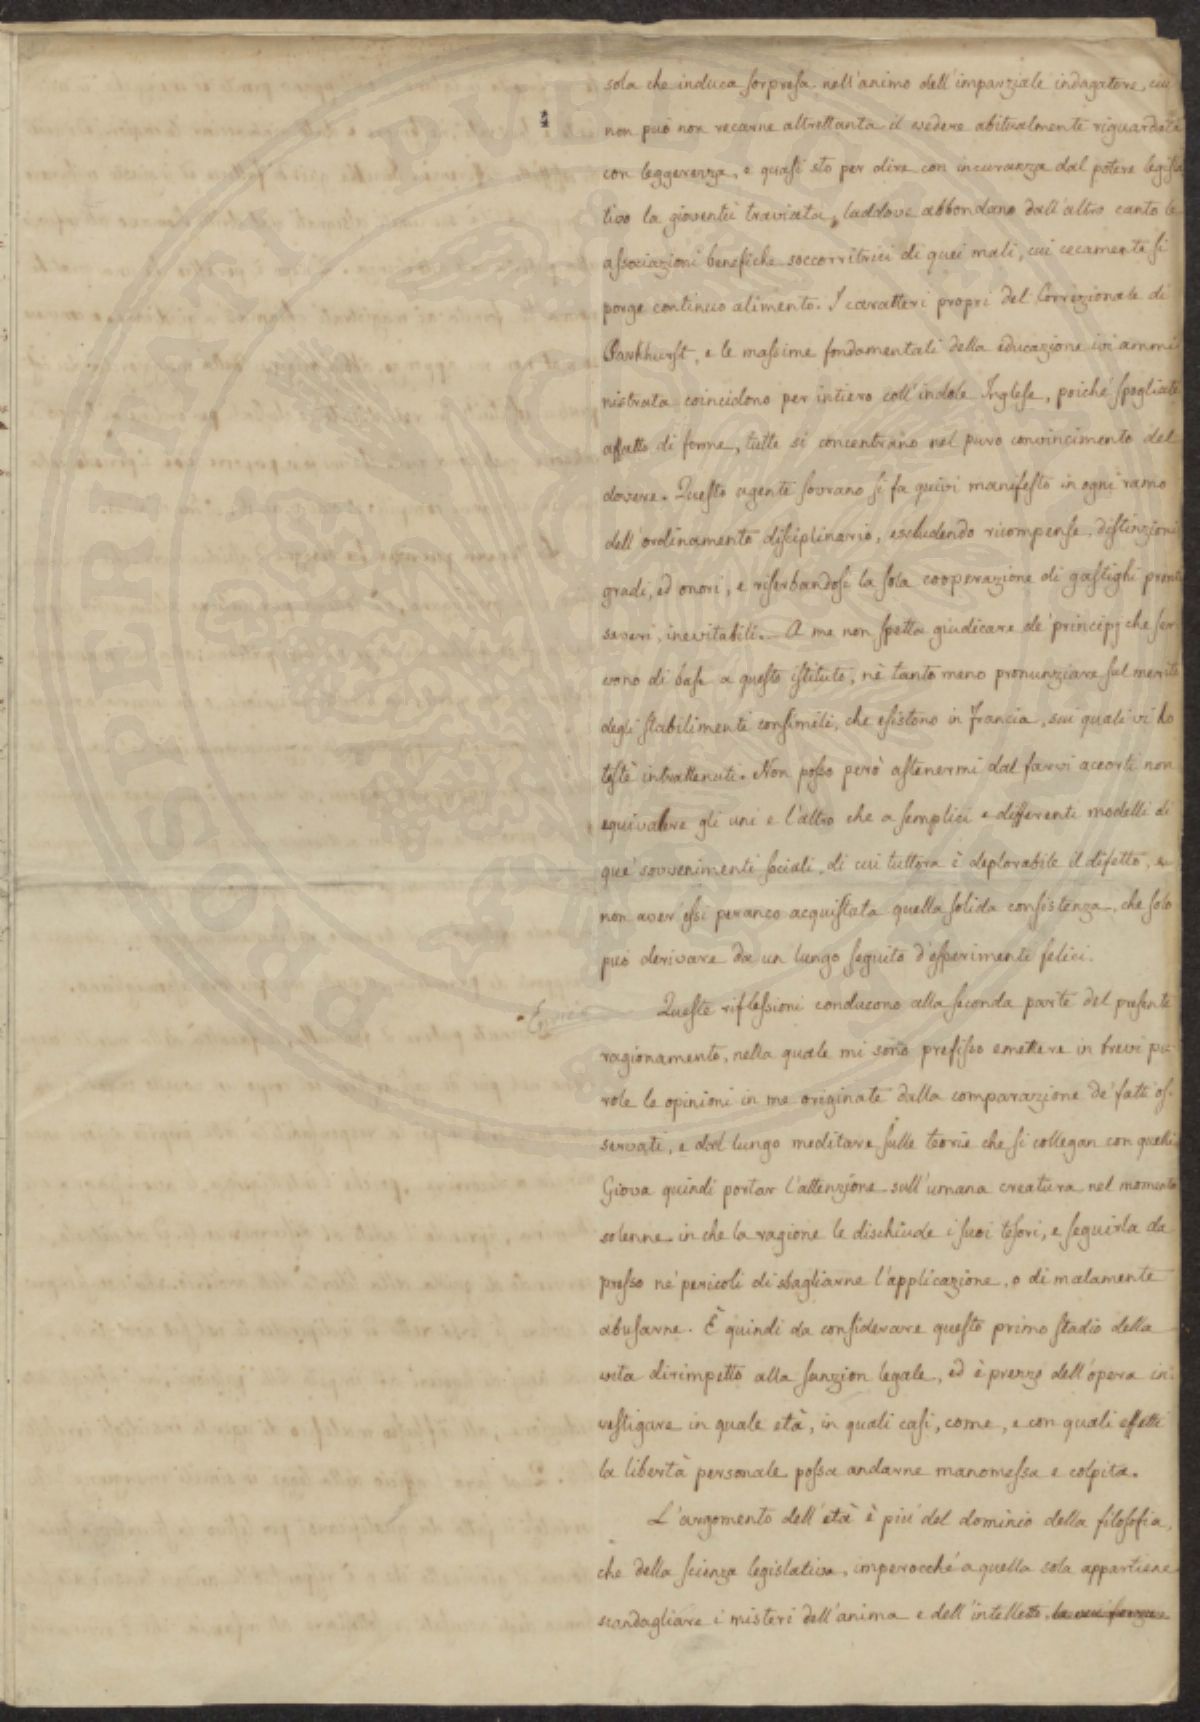 sola che induca sorpresa nell'animo dell'imparziale indagatore, cui
non può non recarne altrettanta il vedere abitualmente riguardata
con leggerezza, e quasi sto per dire con incuranza dal potere legisla
tivo la gioventù traviata, laddove abbondano dall'altro canto le
associazioni benefiche soccorritrici di quei mali, cui cecamente si
porge continuo alimento. I caratteri propri del Correzionale di
Parkhurst, e le massime fondamentali della educazione ivi ammi
nistrata coincidono per intiero coll'indole Inglese, poiché spogliate
affatto di forme, tutte si concentrano nel puro convincimento del
dovere. Questo agente sovrano si fa quivi manifesto in ogni ramo
dell'ordinamento disciplinario, escludendo ricompense, distinzioni
gradi, ed onori, e riserbandosi la sola cooperazione di gastighi pronti
severi, inevitabili. A me non spetta giudicare de' principj che ser
vono di base a questo istituto, nè tanto meno pronunziare sul merito
degli stabilimenti consimili, che esistono in Francia, sui quali vi ho
testè intrattenuti. Non posso però astenermi dal farvi accorti non
equivalere gli uni e l'altro che a semplici e differenti modelli di
que' sovvenimenti sociali, di cui tuttora è deplorabile il difetto, e
non aver essi peranco acquistata quella solida consistenza, che solo
può derivare da un lungo seguito d'esperimenti felici.
Queste riflessioni conducono alla seconda parte del presente
ragionamento, nella quale mi sono prefisso emettere in brevi pa
role le opinioni in me originate dalla comparazione de' fatti os
servati, e dal lungo meditare sulle teorie che si collegan con quelli.
Giova quindi portar l'attenzione sull'umana creatura nel momento
solenne in che la ragione le dischiude i suoi tesori, e seguirla da
presso ne' pericoli di sbagliarne l'applicazione, o di malamente
abusarne. È quindi da considerare questo primo stadio della
vita dirimpetto alla sanzion legale, ed è prezzo dell'opera in
vestigare in quale età, in quali casi, come, e con quali effetti
la libertà personale possa andarne manomessa e colpita.
L'argomento dell'età è più del dominio della filosofia,
che della scienza legislativa, imperocché a quella sola appartiene
scandagliare i misteri dell'anima e dell'intelletto